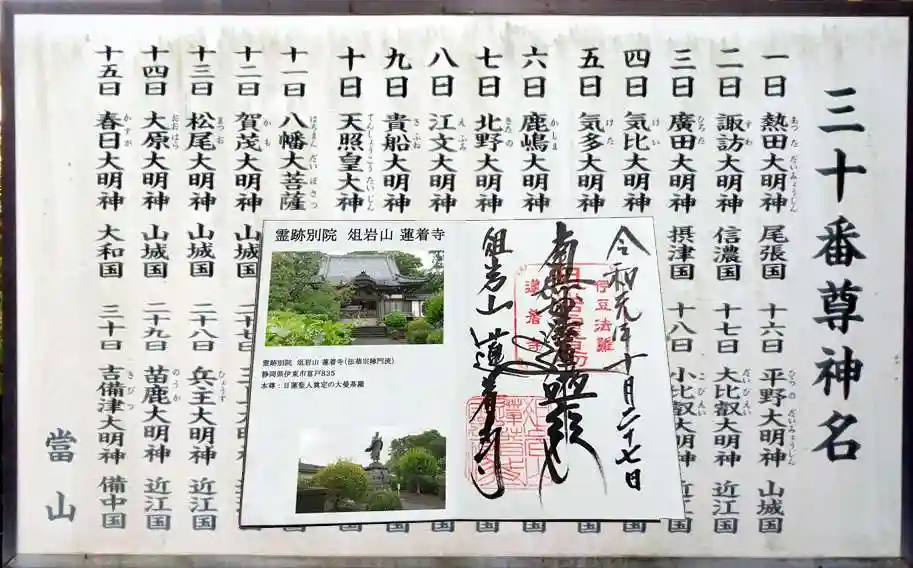 三十番尊神名
一日 熱田大明神 尾張国 十六日 平野大明神 山城国
二日 諏訪大明神 信濃国 十七日 大比叡大明神 近江国
三日 廣田大明神 摂津国 十八日 小比叡大明神 近江国
四日 気比大明神
五日 気多大明神
六日 鹿嶋大明神
七日 北野大明神
八日 江文大明神
九日 貴船大明神
十日 天照皇大神
十一日 八幡大菩薩
十二日 賀茂大明神 山城国
十三日 松尾大明神 山城国 二十八日 兵主大明神 近江国
十四日 大原大明神 山城国 二十九日 苗鹿大明神 近江国
十五日 春日大明神 大和国 三十日 吉備津大明神 備中国
當山
霊跡別院 俎岩山 蓮着寺
霊跡別院 俎岩山 蓮着寺(法華宗陣門流)
静岡県伊東市富戸835
本尊：日蓮聖人奠定の大曼荼羅
令和元年十月二十七日
伊豆法難
蓮着寺
俎岩山 蓮着寺